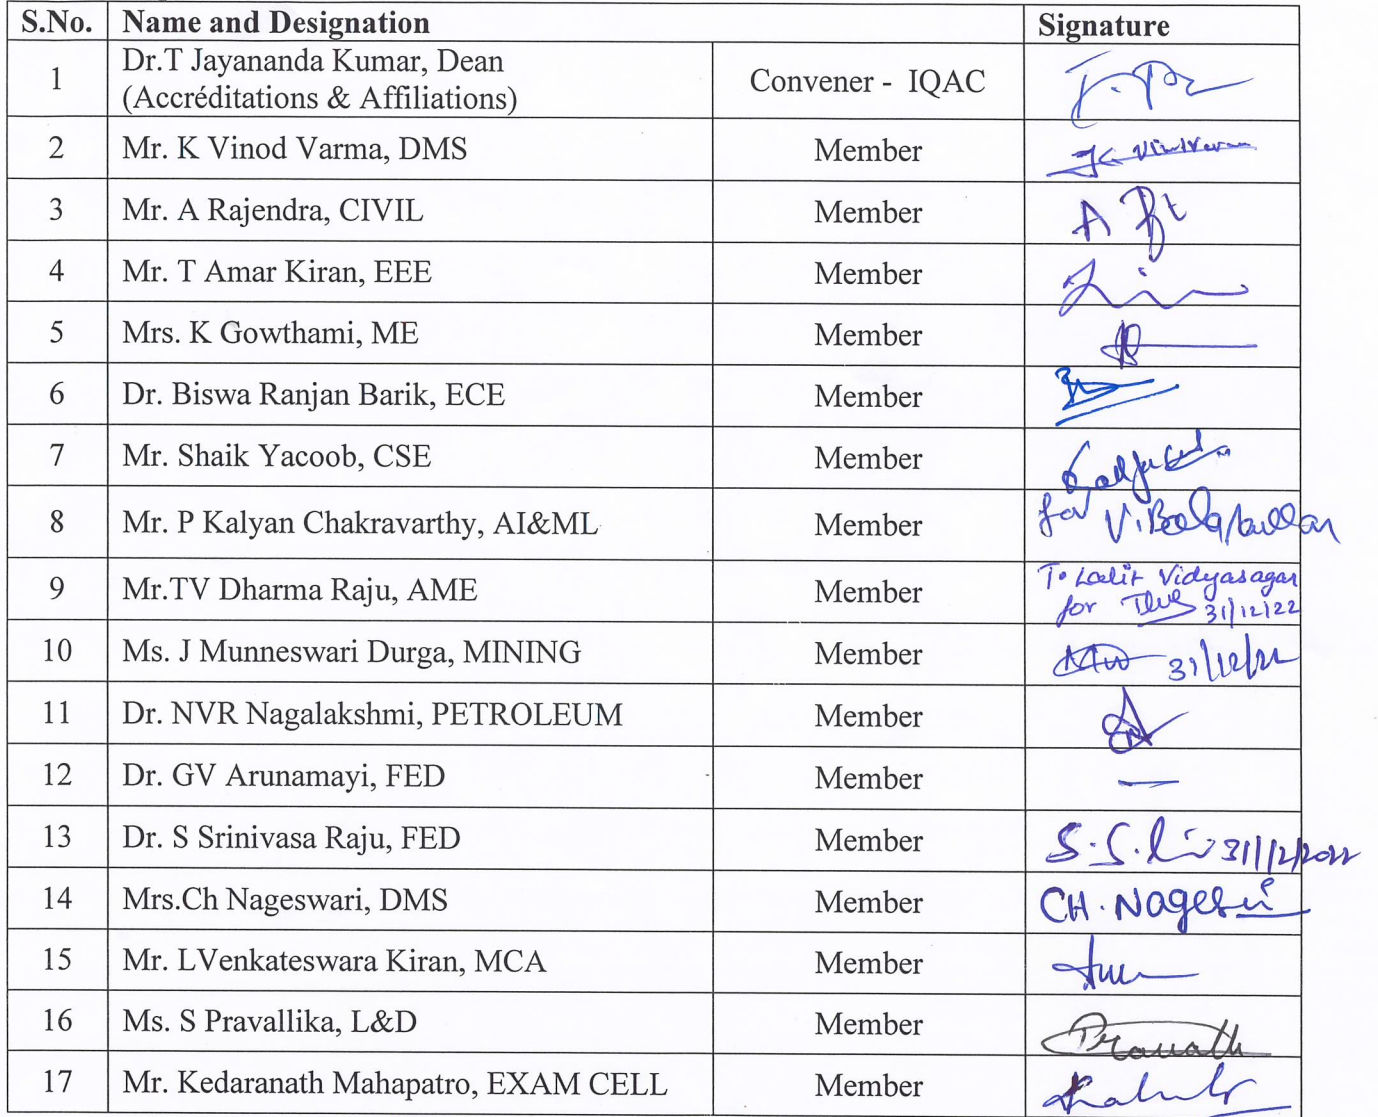 S.No. Name and Designation Signature
1 Dr.T Jayananda Kumar, Dean
(Accréditations & Affiliations) Convener - IQAC
2 Mr. K Vinod Varma, DMS Member
3 Mr. A Rajendra, CIVIL Member A
4 Mr. T Amar Kiran, EEE Member
5 Mrs. K Gowthami, ME Member
6 Dr. Biswa Ranjan Barik, ECE Member
7 Mr. Shaik Yacoob, CSE Member
8 Mr. P Kalyan Chakravarthy, AI&ML Member for
9 Mr.TV Dharma Raju, AME Member T. Lalit Vidyasagar
for 31/12/22
10 Ms. J Munneswari Durga, MINING Member 31/12/22
11 Dr. NVR Nagalakshmi, PETROLEUM Member
12 Dr. GV Arunamayi, FED Member —
13 Dr. S Srinivasa Raju, FED Member S.S. 31/12/2022
14 Mrs.Ch Nageswari, DMS Member CH. Nageswari
15 Mr. LVenkateswara Kiran, MCA Member
16 Ms. S Pravallika, L&D Member
17 Mr. Kedaranath Mahapatro, EXAM CELL Member